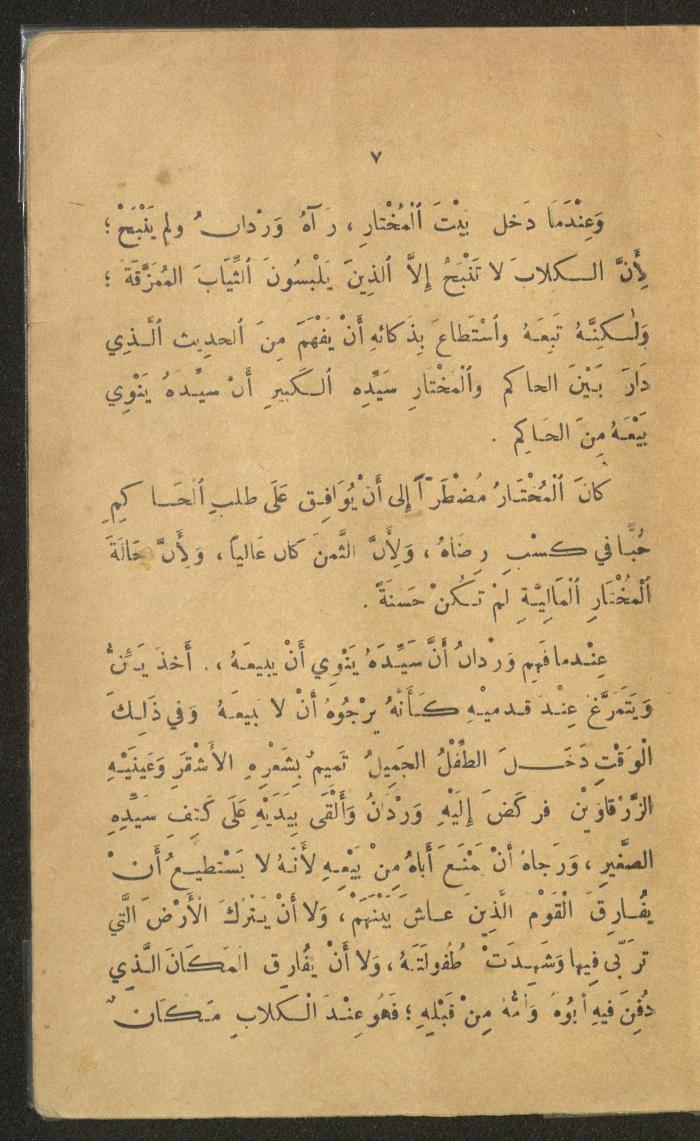 ٧
وَعِنْدَمَا دَخل بَيْتَ ٱلْمُخْتارِ ، رَآهُ وَرْدانُ ولم يَنْبَحْ ؛
لِأَنَّ الكلابَ لا تَنْبَحُ إِلاَّ ٱلذِينَ يَلْبسُونَ ٱلثِّيَابَ المُمَزَّقَةَ ؛
وَلٰكِنَّهُ تَبِعَهُ وٱسْتَطاعَ بِذَكائهِ أَنْ يَفْهَمَ مِنَ ٱلحدِيث ٱلَّذِي
دَارَ بَيْنَ الحاكم وٱلْمُخْتارِ سَيِّدِه ٱلكَبيرِ أَنَّ سيِّدهُ يَنْوِي
بَيْعَهُ مِنَ الحَاكِمِ .
كانَ ٱلْمُخْتَارُ مُضْطَرّاً إِلى أَنْ يُوَافِق عَلَى طلبِ ٱلحَاكِمِ
حُبًّا في كسْبِ رِضَاهُ ، وَلِأَنَّ الثَّمنَ كانَ غَالياً ، وَلِأَنَّ حَالَةَ
ٱلْمُخْتَارِ ٱلْمَالِيَّةِ لَمْ تَكُنْ حَسَنَةً .
عِنْدما فَهِمَ وَرْدانُ أَنَّ سَيِّدَهُ يَنْوِي أَنْ يبيعَهُ ، . أَخذَ يَئِنُّ
وَيَتَمَرَّغُ عِنْدَ قدميْهِ كَأَنَّهُ يرْجُوهُ أَنْ لا يبيعَهُ وَفي ذَلِكَ
الْوَقْتِ دَخَلَ الطِّفْلُ الجَمِيلُ تَمِيمٌ بِشَعْرِهِ الأَشْقَرِ وَعَينَيْهِ
الزَّرْقاوَيْن فركَضَ إِلَيْهِ وَرْدَانُ وَأَلْقَى بِيَدَيْهِ عَلَى كَتِفِ سَيِّدِهِ
الصَّغِيرِ ، وَرَجاهُ أَنْ يَمْنَعَ أَباهُ مِنْ بَيْعِهِ لأَنَّهُ لا يَسْتطِيعُ أَنْ
يُفَارِقَ الْقَوْمَ الَّذِينَ عاشَ بَيْنَهُمْ ، وَلا أَنْ يَتْرُكَ الأَرْضَ الَّتي
تربّى فِيها وَشَهِدَتْ طُفُولَتَهُ ، وَلا أَنْ يُفَارِقَ المَكَانَ الَّذِي
دُفِنَ فيهِ أَبُوهُ وَأُمُّهُ مِنْ قَبْلِهِ ؛ فَهُو عِنْدَ الْكلابِ مَكَانٌ